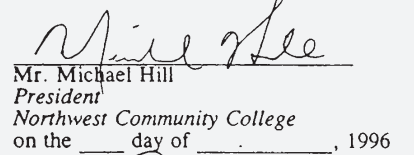 Mr. Michael Hill
President
Northwest Community College
on the ____ day of ____.____, 1996